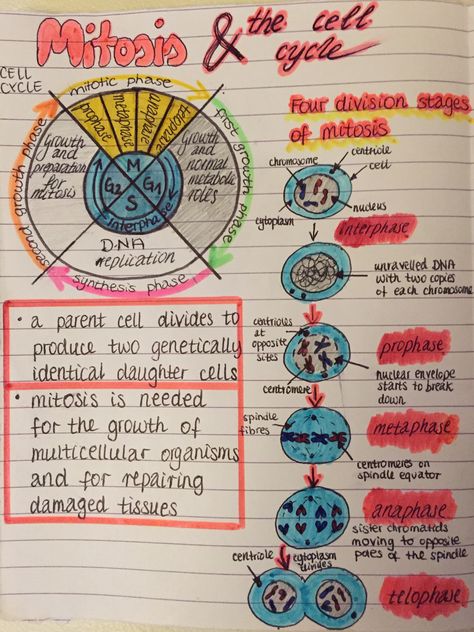 Mitosis & the cell cycle
CELL
CYCLE
mitotic phase
prophase
metaphase
anaphase
telophase
first growth phase
second growth phase
synthesis phase
Growth
and
preparation
for
mitosis
Growth
and
normal
metabolic
roles
M
G2
G1
S
interphase
DNA
replication
Four division stages
of mitosis
chromosome
centriole
cell
cytoplasm
nucleus
interphase
unravelled DNA
with two copies
of each chromosome
centrioles
at
opposite
sites
prophase
nuclear envelope
starts to break
down
centromere
spindle
fibres
metaphase
centromeres on
spindle equator
anaphase
sister chromatids
moving to opposite
poles of the spindle
centriole
cytoplasm
divides
telophase
• a parent cell divides to
produce two genetically
identical daughter cells
• mitosis is needed
for the growth of
multicellular organisms
and for repairing
damaged tissues